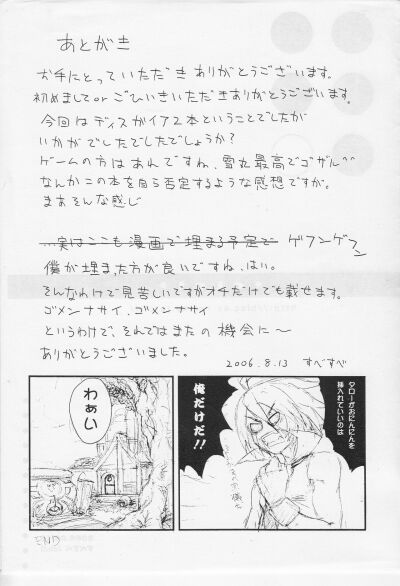 あとがき
お手にとっていただきありがとうございます。
初めましてorごひいきいただきありがとうございます。
今回はディスガイア2本ということでしたが
いかがでしたでしたでしょうか？
ゲームの方はあれですね、雪丸最高でゴザル^^
なんかこの本を自ら否定するような感想ですが。
まあそんな感じ
…実はここも漫画で埋まる予定で ゲフンゲフン
僕が埋まった方が良いですね、はい。
そんなわけで見苦しいですがオチだけでも載せます。
ゴメンナサイ、ゴメンナサイ
というわけで、それではまたの機会に〜
ありがとうございました。
2006.8.13 すべすべ
タローがおにんにんを
挿入れていいのは
俺だけだ!!
わぁい
END